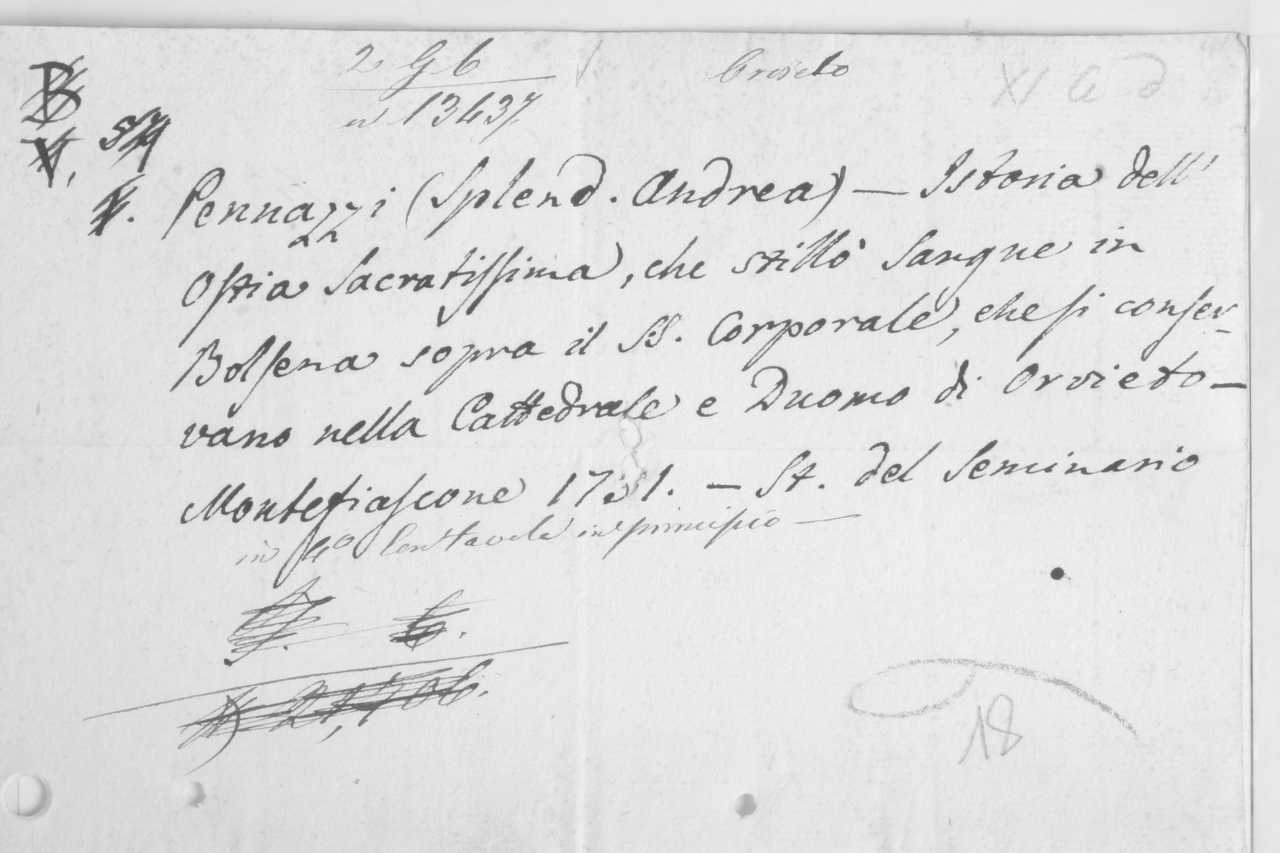 2 G b
Orvieto
XI G d
n 13437
B
V.
Pennazzi (Splend. Andrea) — Istoria dell'
Ostia Sacratissima, che stillò Sangue in
Bolsena sopra il SS. Corporale, che si conser-
vano nella Cattedrale e Duomo di Orvieto —
Montefiascone 1731. — St. del Seminario
in 4º Con tavola in principio —
b.
21,706.
18